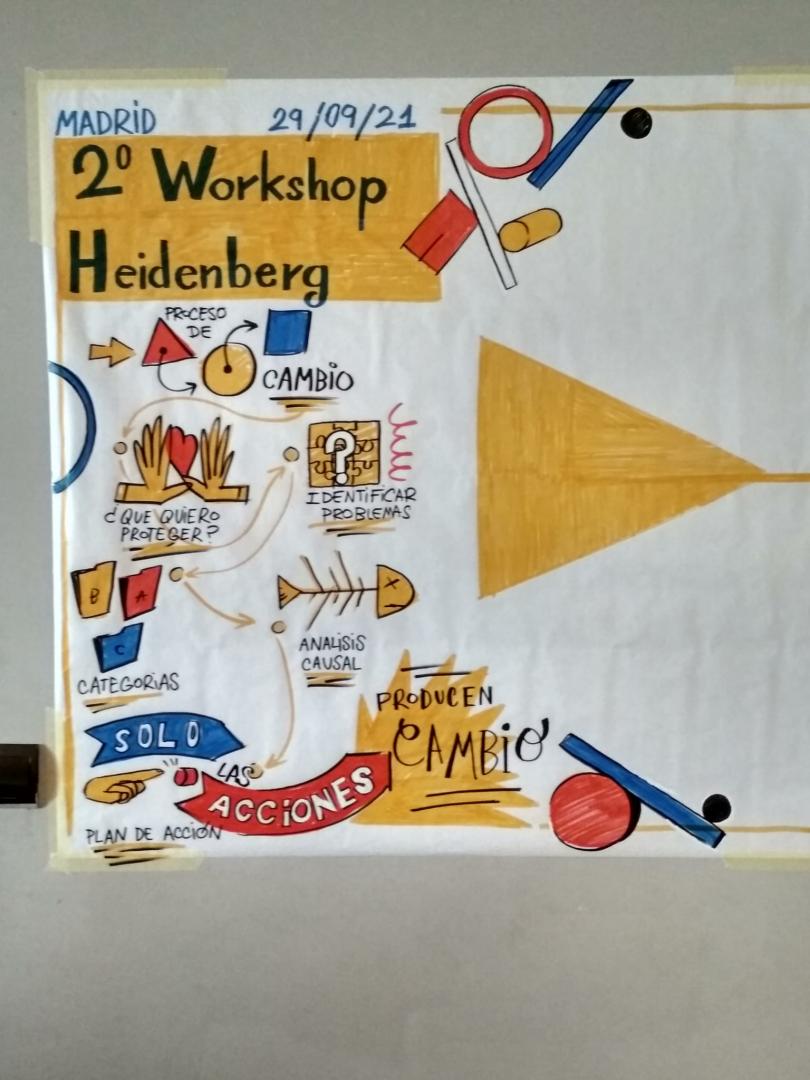 MADRID 29/09/21
2º Workshop
Heidenberg
PROCESO
DE
CAMBIO
¿QUE QUIERO
PROTEGER?
?
IDENTIFICAR
PROBLEMAS
B A
C
CATEGORIAS
X
ANALISIS
CAUSAL
SOLO
LAS
ACCIONES
PRODUCEN
CAMBIO
PLAN DE ACCIÓN